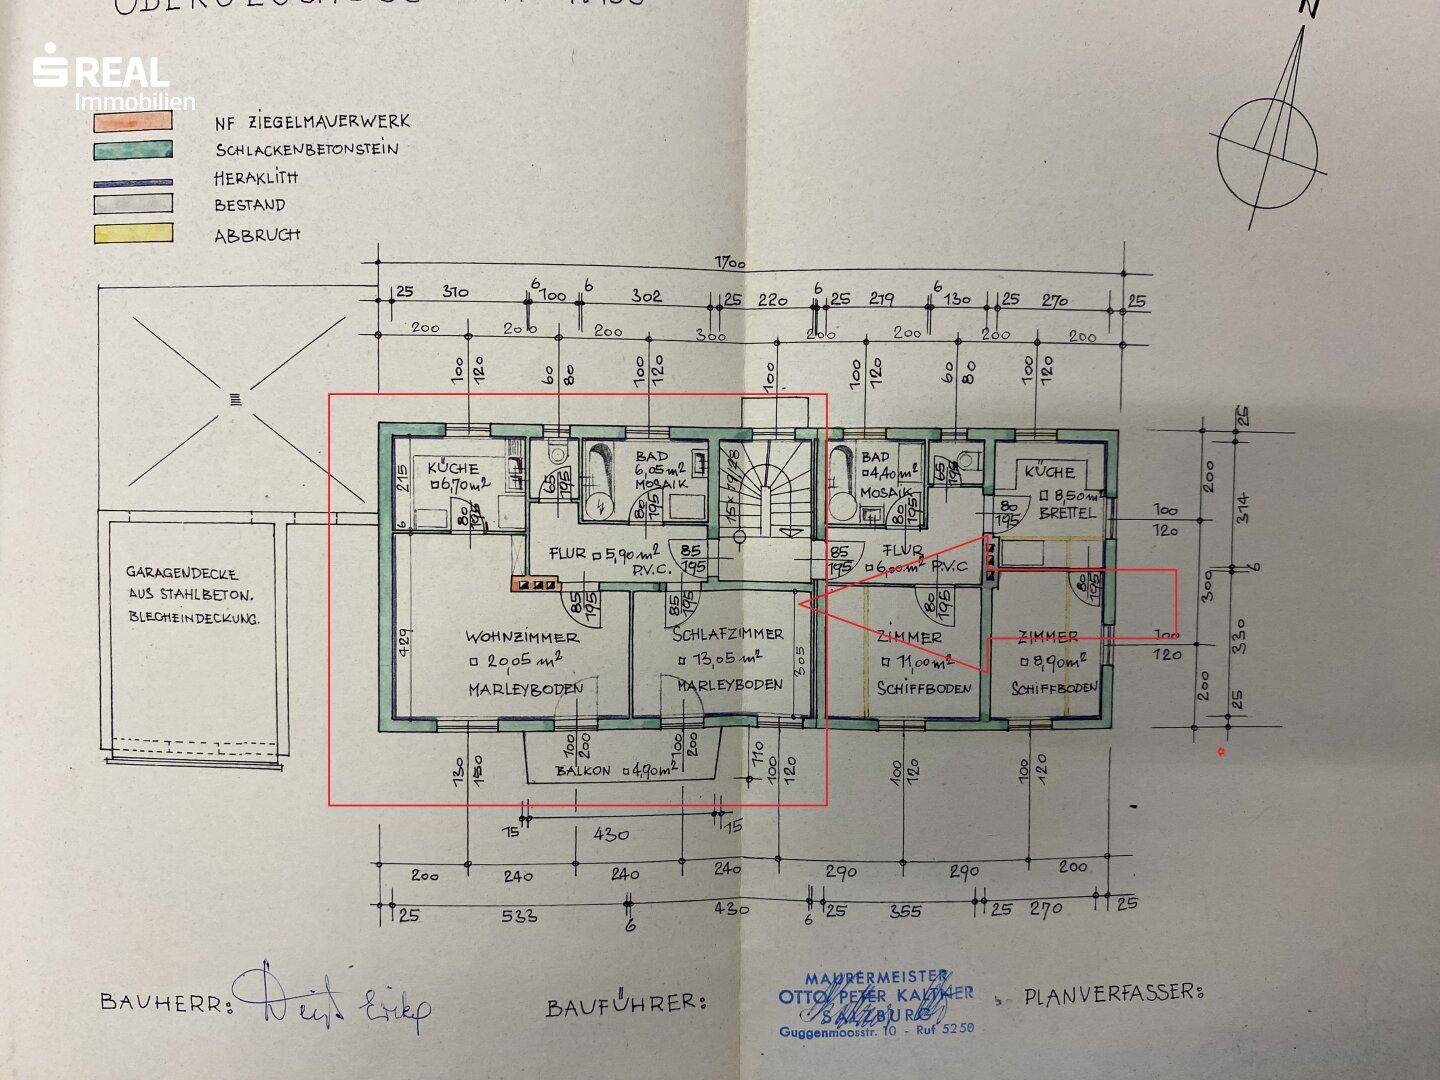 N
S REAL
Immobilien
NF ZIEGELMAUERWERK
SCHLACKENBETONSTEIN
HERAKLITH
BESTAND
ABBRUCH
1700
25 310 6 100 6 302 25 220 6 25 279 6 130 25 270 25
200 200 200 300 200 200 200 200
100 120 60 80 100 120 100 100 120 60 80 100 120
KÜCHE
6,70 m²
215
80 195
65 195
BAD
6,05 m²
MOSAIK
80 195
15 x 19/28
BAD
4,40 m²
MOSAIK
80 195
65 195
KÜCHE
8,50 m²
BRETTEL
80 195
FLUR 5,90 m²
P.V.C.
85 195
85 195
FLUR
6,00 m² P.V.C
WOHNZIMMER
20,05 m²
MARLEYBODEN
429
85 195
SCHLAFZIMMER
13,05 m²
MARLEYBODEN
305
85 195
ZIMMER
11,00 m²
SCHIFFBODEN
80 195
ZIMMER
8,90 m²
SCHIFFBODEN
80 195
GARAGENDECKE
AUS STAHLBETON.
BLECHEINDECKUNG.
100 200
100 200
BALKON 4,90 m²
130 150 110 100 120 100 120 100 120
25
200 314
100 120
6
300 330
100 120
200 25
15 430 15
200 240 240 240 290 290 200
25 533 6 430 6 25 355 25 270 25
BAUHERR:
BAUFÜHRER:
MAURERMEISTER
OTTO PETER KALTNER
SALZBURG
Guggenmoosstr. 10 - Ruf 5250
PLANVERFASSER: